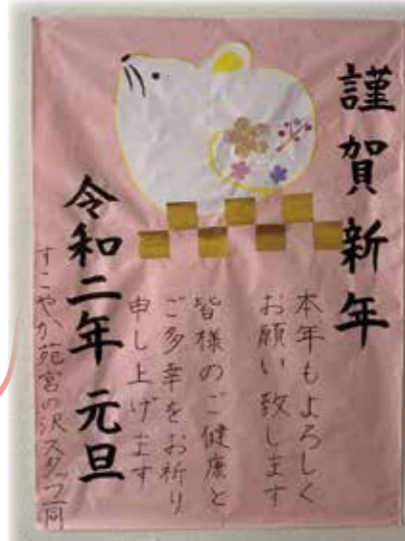 謹賀新年
本年もよろしく
お願い致します
皆様のご健康と
ご多幸をお祈り
申し上げます
令和二年 元旦
すこやか苑宮の沢スタッフ一同